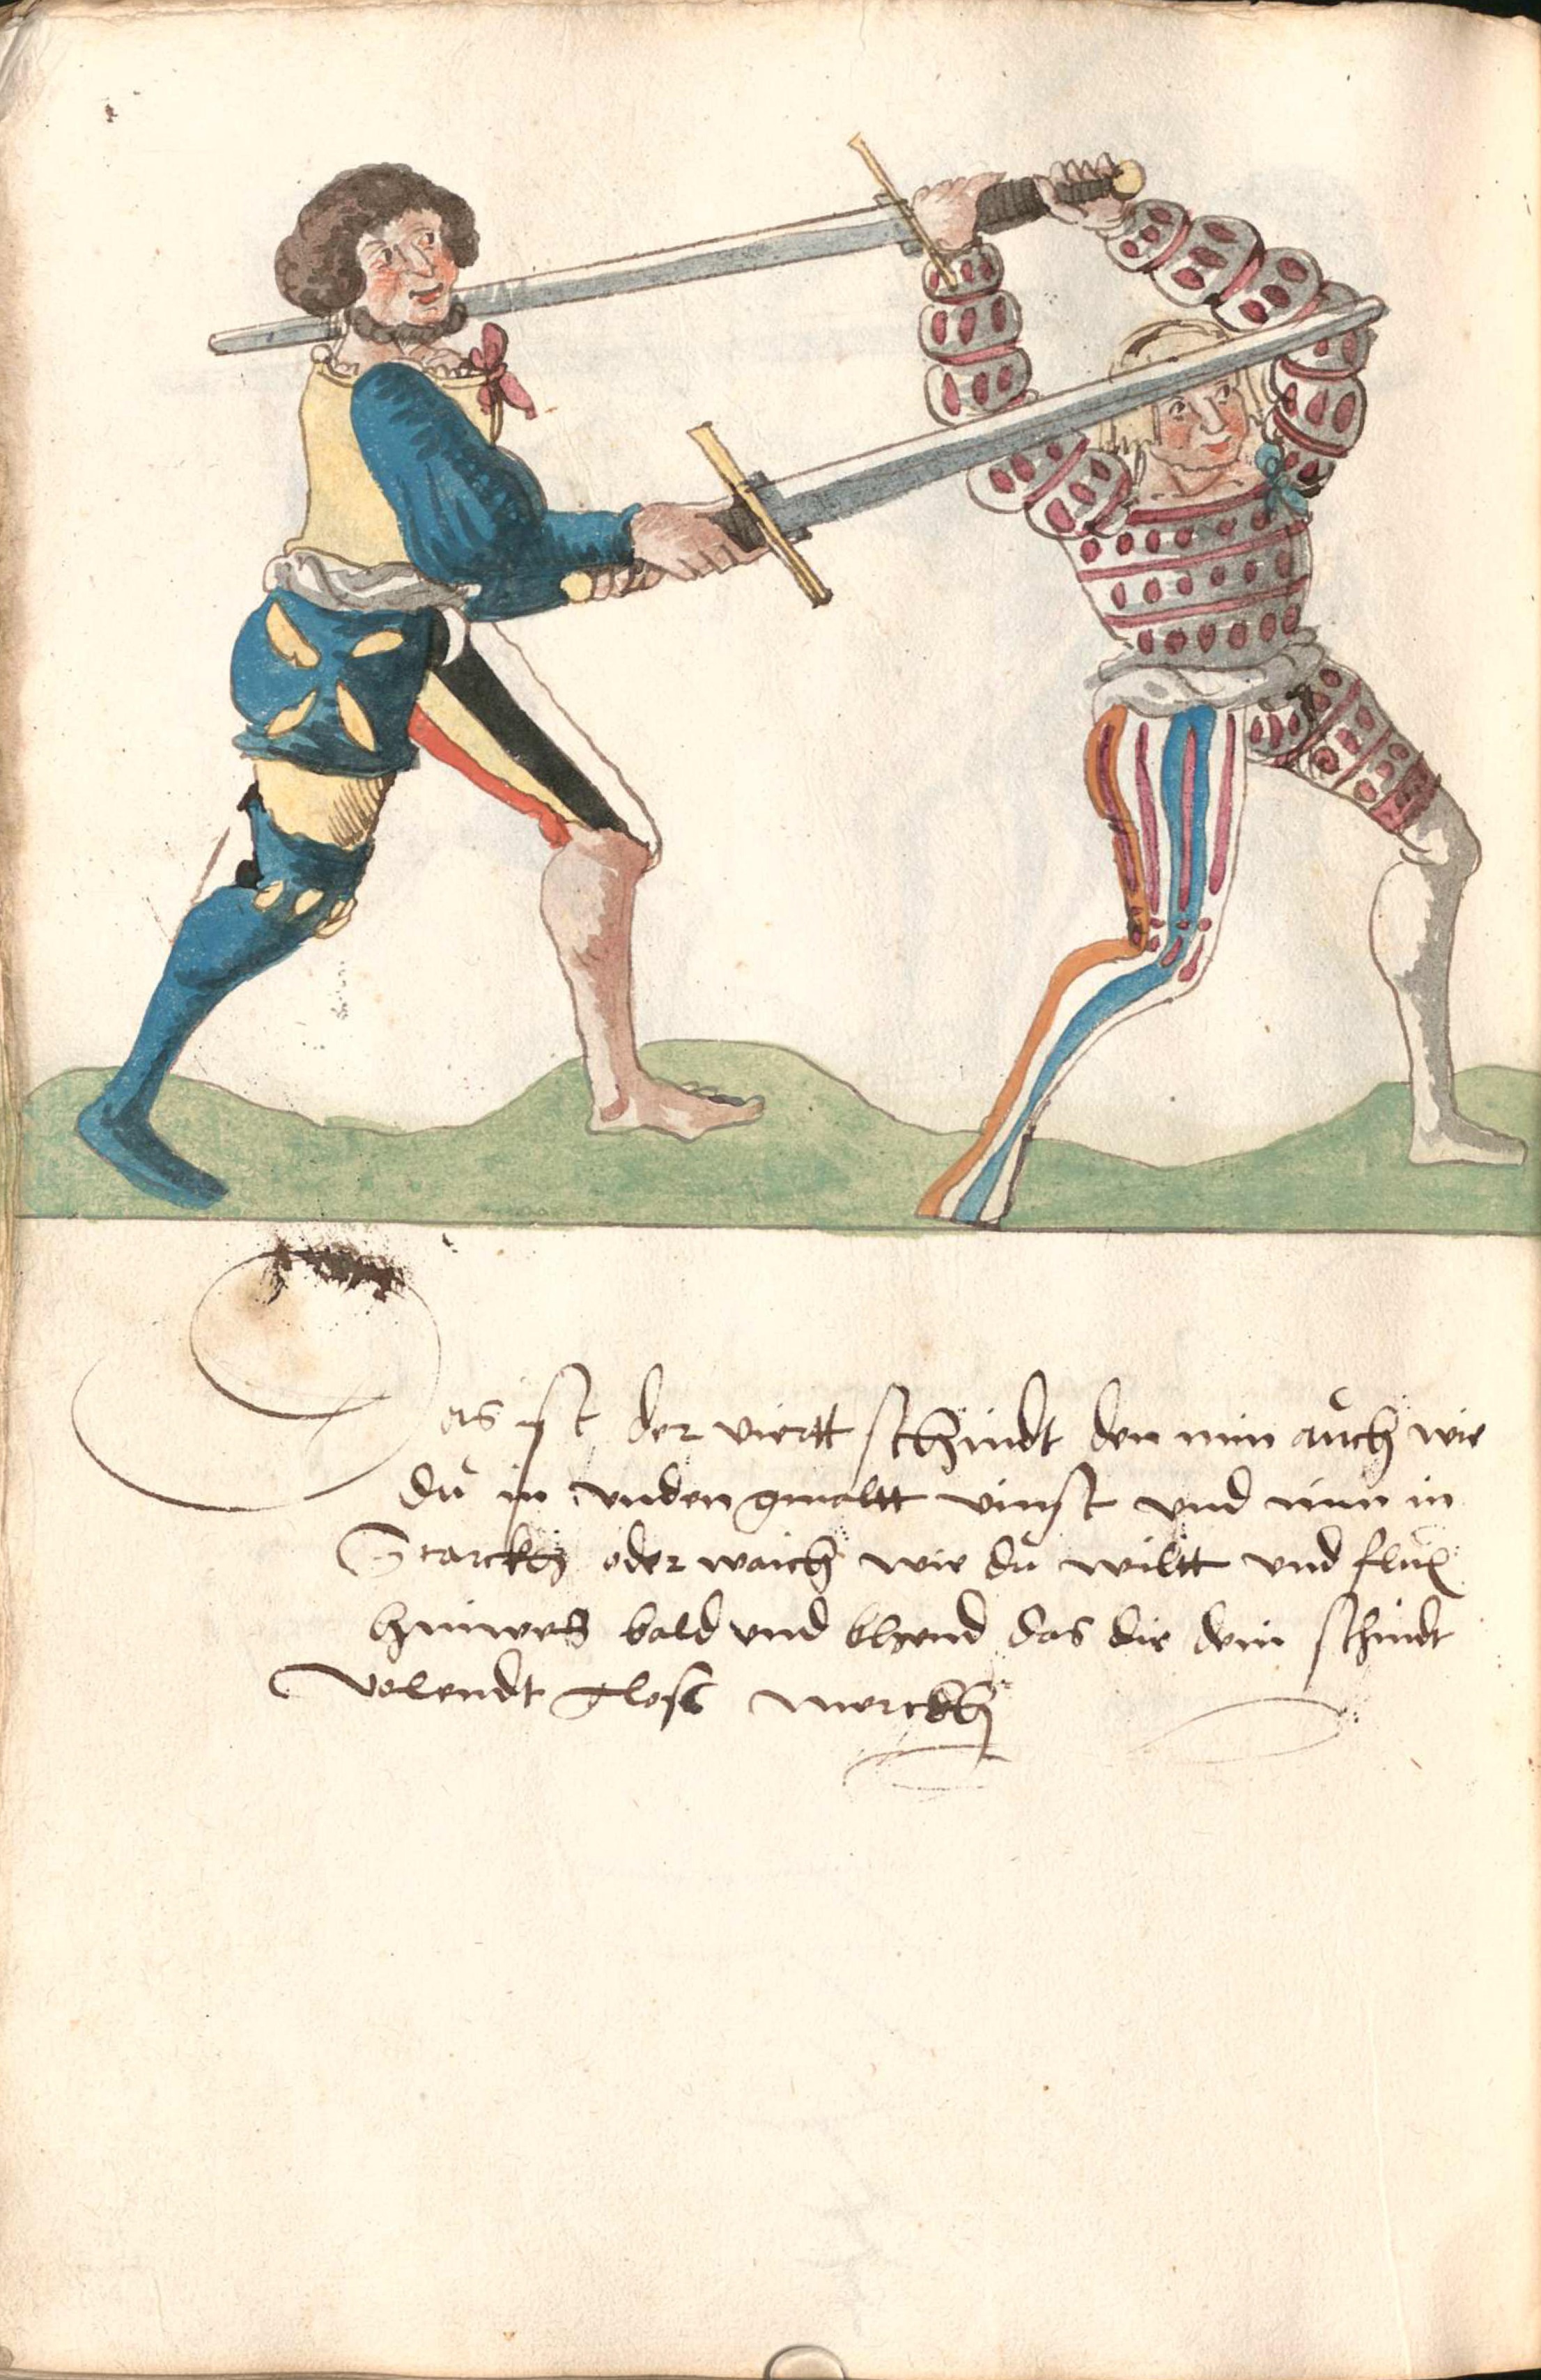 Das ist der viertt schnidt den nim auch wie
du in unden gmaltt vinst und nim in
Starckh oder waich wie du wiltt und flux
hinweg bald und bhend das die dein schnidt
Volendt Glost merckh